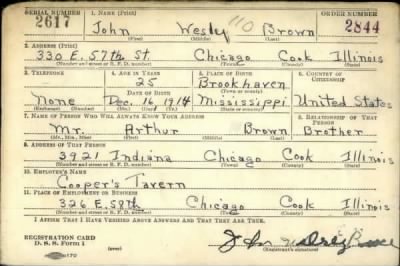 SERIAL NUMBER 1. NAME (Print) ORDER NUMBER
2617 John Wesley 110 Brown 2844
(First) (Middle) (Last)
2. ADDRESS (Print)
330 E. 57th St. Chicago Cook Illinois
(Number and street or R. F. D. number) (Town) (County) (State)
3. TELEPHONE 4. AGE IN YEARS 5. PLACE OF BIRTH 6. COUNTRY OF CITIZENSHIP
25 Brookhaven
DATE OF BIRTH (Town or county)
None Dec. 16, 1914 Mississippi United States
(Exchange) (No.) (Mo.) (Day) (Yr.) (State or country)
7. NAME OF PERSON WHO WILL ALWAYS KNOW YOUR ADDRESS 8. RELATIONSHIP OF THAT PERSON
Mr. Arthur Brown Brother
(Mr., Mrs., Miss) (First) (Middle) (Last)
9. ADDRESS OF THAT PERSON
3921 Indiana Chicago Cook Illinois
(Number and street or R. F. D. number) (Town) (County) (State)
10. EMPLOYER'S NAME
Cooper's Tavern
11. PLACE OF EMPLOYMENT OR BUSINESS
326 E. 58th Chicago Cook Illinois
(Number and street or R. F. D. number) (Town) (County) (State)
I AFFIRM THAT I HAVE VERIFIED ABOVE ANSWERS AND THAT THEY ARE TRUE.
REGISTRATION CARD
D. S. S. Form 1 (over) John
(Registrant's signature)